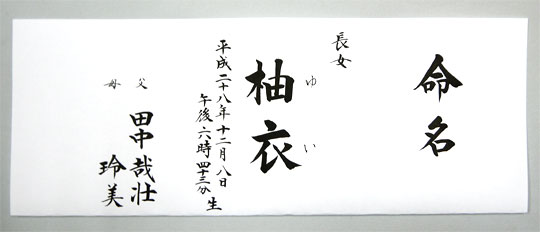 命名
長女
柚衣
ゆい
平成二十八年十二月八日
午後六時四十三分 生
父 田中哉壮
母 玲美